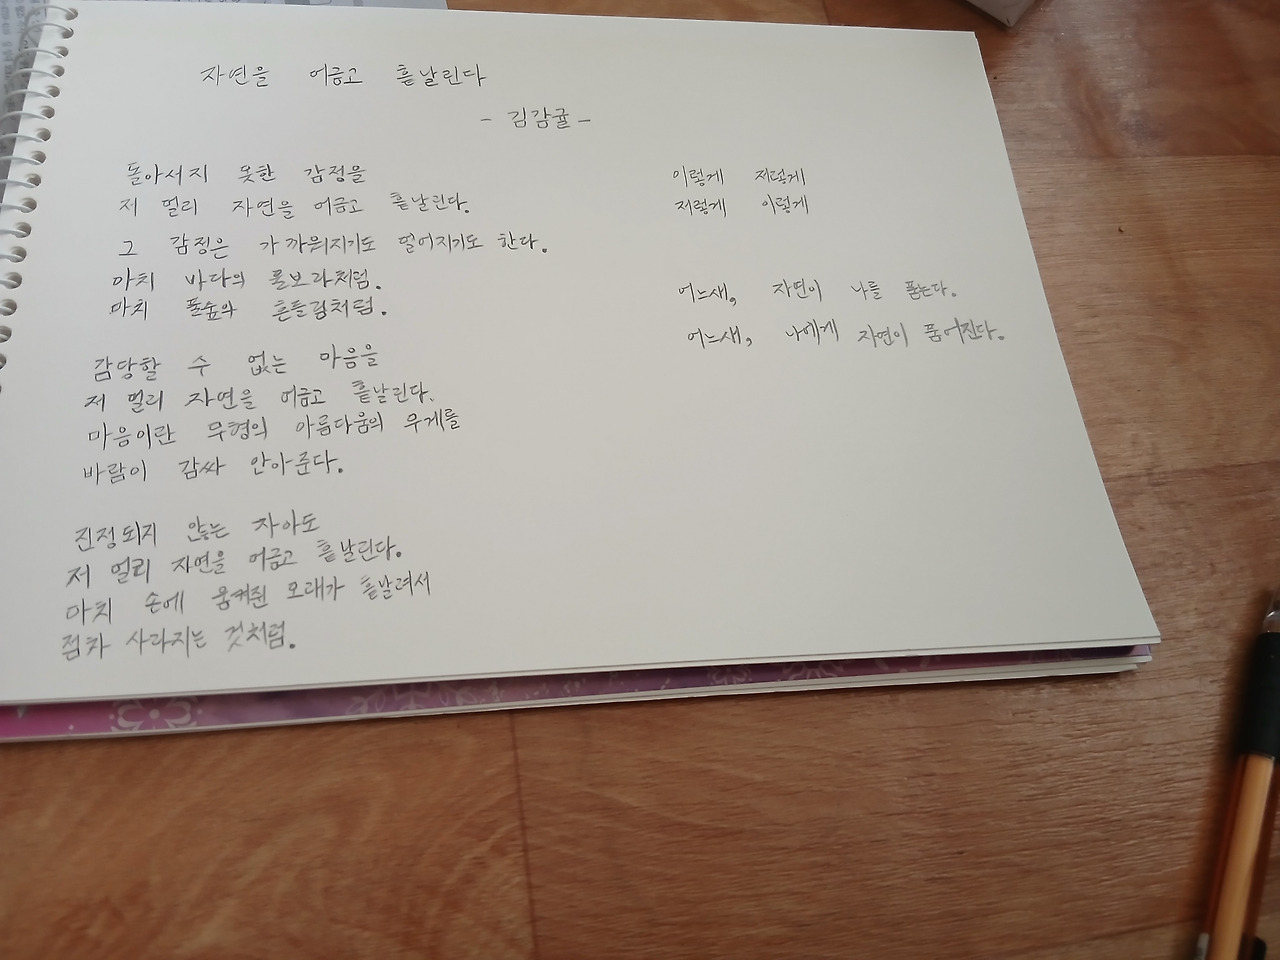 자연을 어금고 흩날린다
- 김감귤 -
돌아서지 못한 감정을
저 멀리 자연을 어금고 흩날린다.
그 감정은 가까워지기도 멀어지기도 한다.
마치 바다의 물보라처럼.
마치 풀숲의 흔들림처럼.
감당할 수 없는 마음을
저 멀리 자연을 어금고 흩날린다.
마음이란 무형의 아름다움의 무게를
바람이 감싸 안아준다.
진정되지 않는 자아도
저 멀리 자연을 어금고 흩날린다.
마치 손에 움켜쥔 모래가 흩날려서
점차 사라지는 것처럼.
이렇게 저렇게
저렇게 이렇게
어느새, 자연이 나를 품는다.
어느새, 나에게 자연이 품어진다.